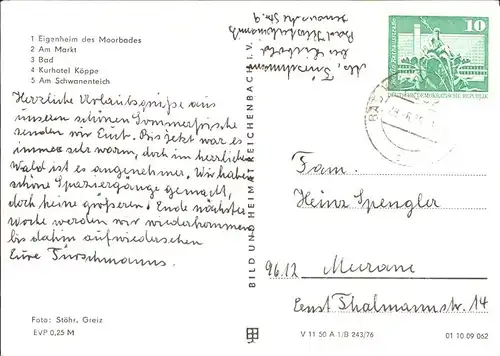 1 Eigenheim des Moorbades
2 Am Markt
3 Bad
4 Kurhotel Köppe
5 Am Schwanenteich
Herzliche Urlaubsgrüße aus
unserer schönen Sommerfrische
senden wir Euch. Bis jetzt war es
immer sehr warm, doch im herrlichen
Wald ist es angenehmer. Wir haben
schöne Spaziergänge gemacht,
doch keine größeren. Ende nächster
Woche werden wir wiederkommen,
bis dahin aufwiedersehen
Eure Türschmanns.
Foto: Stöhr, Greiz
EVP 0,25 M
BILD UND HEIMAT REICHENBACH I. V.
Abs. Türschmann
10
DEUTSCHE DEMOKRATISCHE REPUBLIK
Fam.
Heinz Spengler
9612 Meerane
Ernst Thälmannstr. 14
V 11 50 A 1/B 243/76
01 10 09 062